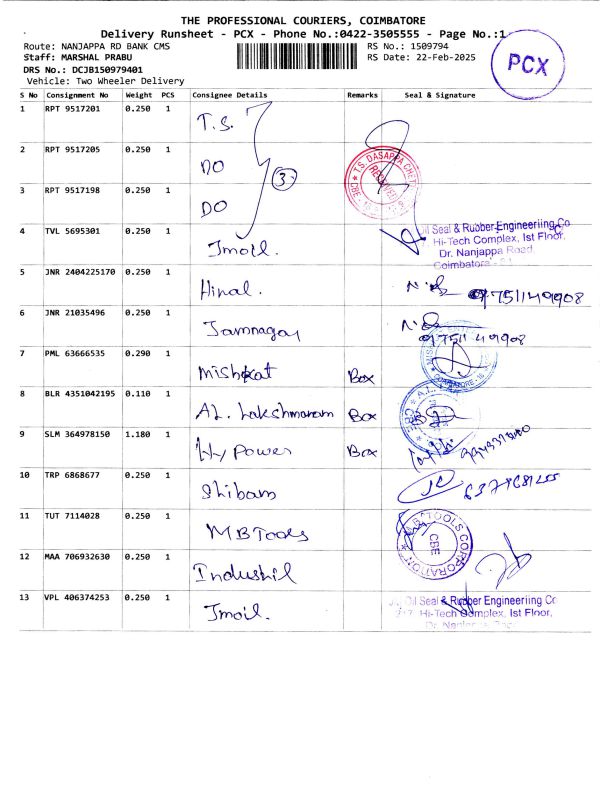 THE PROFESSIONAL COURIERS, COIMBATORE
Delivery Runsheet - PCX - Phone No.:0422-3505555 - Page No.:1
Route: NANJAPPA RD BANK CMS
RS No.: 1509794
Staff: MARSHAL PRABU
RS Date: 22-Feb-2025
DRS No.: DCJB150979401
Vehicle: Two Wheeler Delivery
PCX
S No Consignment No Weight PCS Consignee Details Remarks Seal & Signature
1 RPT 9517201 0.250 1 T.S.
2 RPT 9517205 0.250 1 DO
3
T.S. DASAPPA CHET
CBE
3 RPT 9517198 0.250 1 DO
4 TVL 5695301 0.250 1 Jmoil.
Oil Seal & Rubber Engineeriing Co
Hi-Tech Complex, Ist Floor,
Dr. Nanjappa Road,
Coimbatore
5 JNR 2404225170 0.250 1 Hinal. 9751149908
6 JNR 21035496 0.250 1 Jamnagar 9751149908
7 PML 63666535 0.290 1 Mishkat Box
COIMBATORE
8 BLR 4351042195 0.110 1 AL. Lakshmanam Box
CBE
9 SLM 364978150 1.180 1 Hy Power Box
10 TRP 6868677 0.250 1 Shibam
11 TUT 7114028 0.250 1 MBTools
M.B. TOOLS CORPORATION
CBE
12 MAA 706932630 0.250 1 Industhil
13 VPL 406374253 0.250 1 Jmoil.
Oil Seal & Rubber Engineeriing Co
Hi-Tech Complex, Ist Floor,